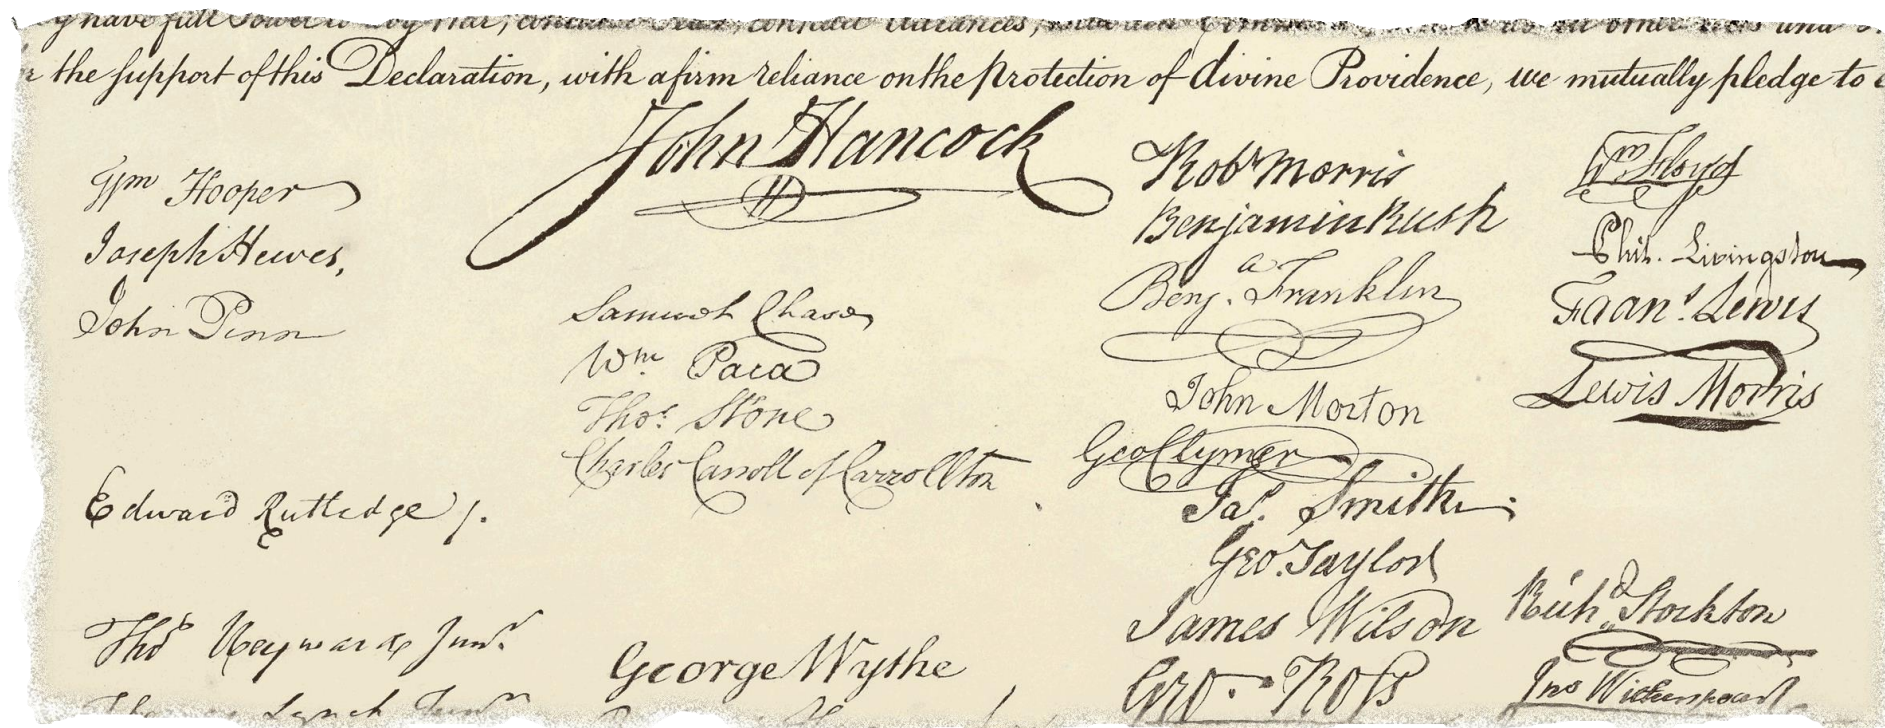 have full Power to Levy War, conclude Peace, contract Alliances,
the support of this Declaration, with a firm reliance on the protection of divine Providence, we mutually pledge to
John Hancock
Wm Hooper
Joseph Hewes,
John Penn
Edward Rutledge /.
Thos Heyward Junr
Thomas Lynch Junr
Samuel Chase
Wm. Paca
Thos. Stone
Charles Carroll of Carrollton
George Wythe
Robt Morris
Benjamin Rush
Benja. Franklin
John Morton
Geo Clymer
Jas. Smith
Geo. Taylor
James Wilson
Geo. Ross
Wm Floyd
Phil. Livingston
Frans. Lewis
Lewis Morris
Richd. Stockton
Jno Witherspoon